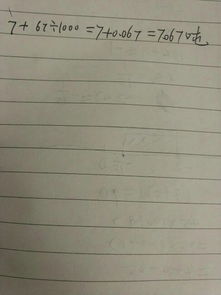 7+67÷1000=7+0.067=7.067吨